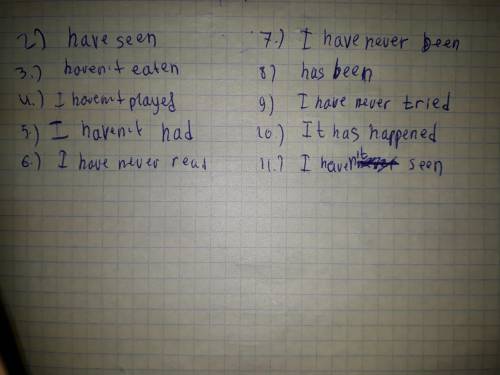 2) have seen
3.) haven't eaten
4.) I haven't played
5.) I haven't had
6.) I have never read
7.) I have never been
8) has been
9) I have never tried
10.) It has happened
11.) I haven't seen